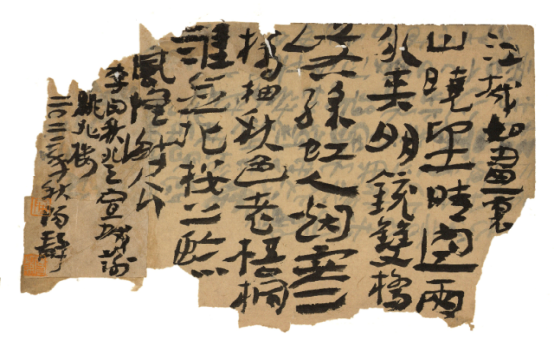 江城如畫裏
山曉望晴空兩
水夾明鏡雙橋
落彩虹人烟寒
橘柚秋色老梧桐
誰念北樓上臨
風懷謝公
李白秋登宣城謝
朓北樓
年秋